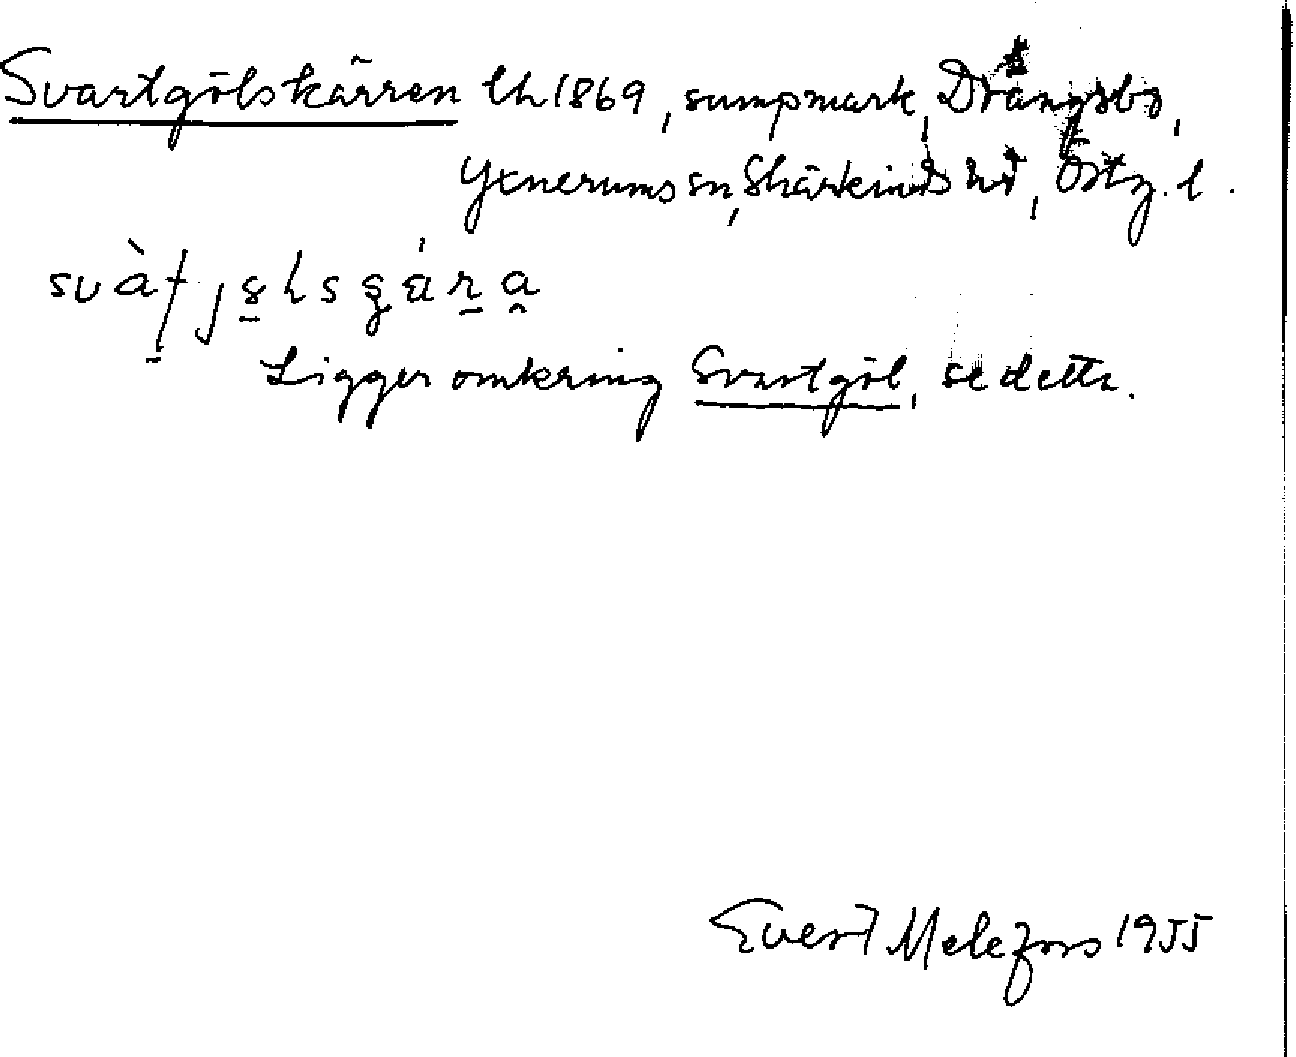 Svartgölskärren lh 1869, sumpmark, Drängsbo,
Yxnerums sn, Skärkinds hd, Östg. l.
Ligger omkring Svartgöl, se detta.
Evert Melefors 1955